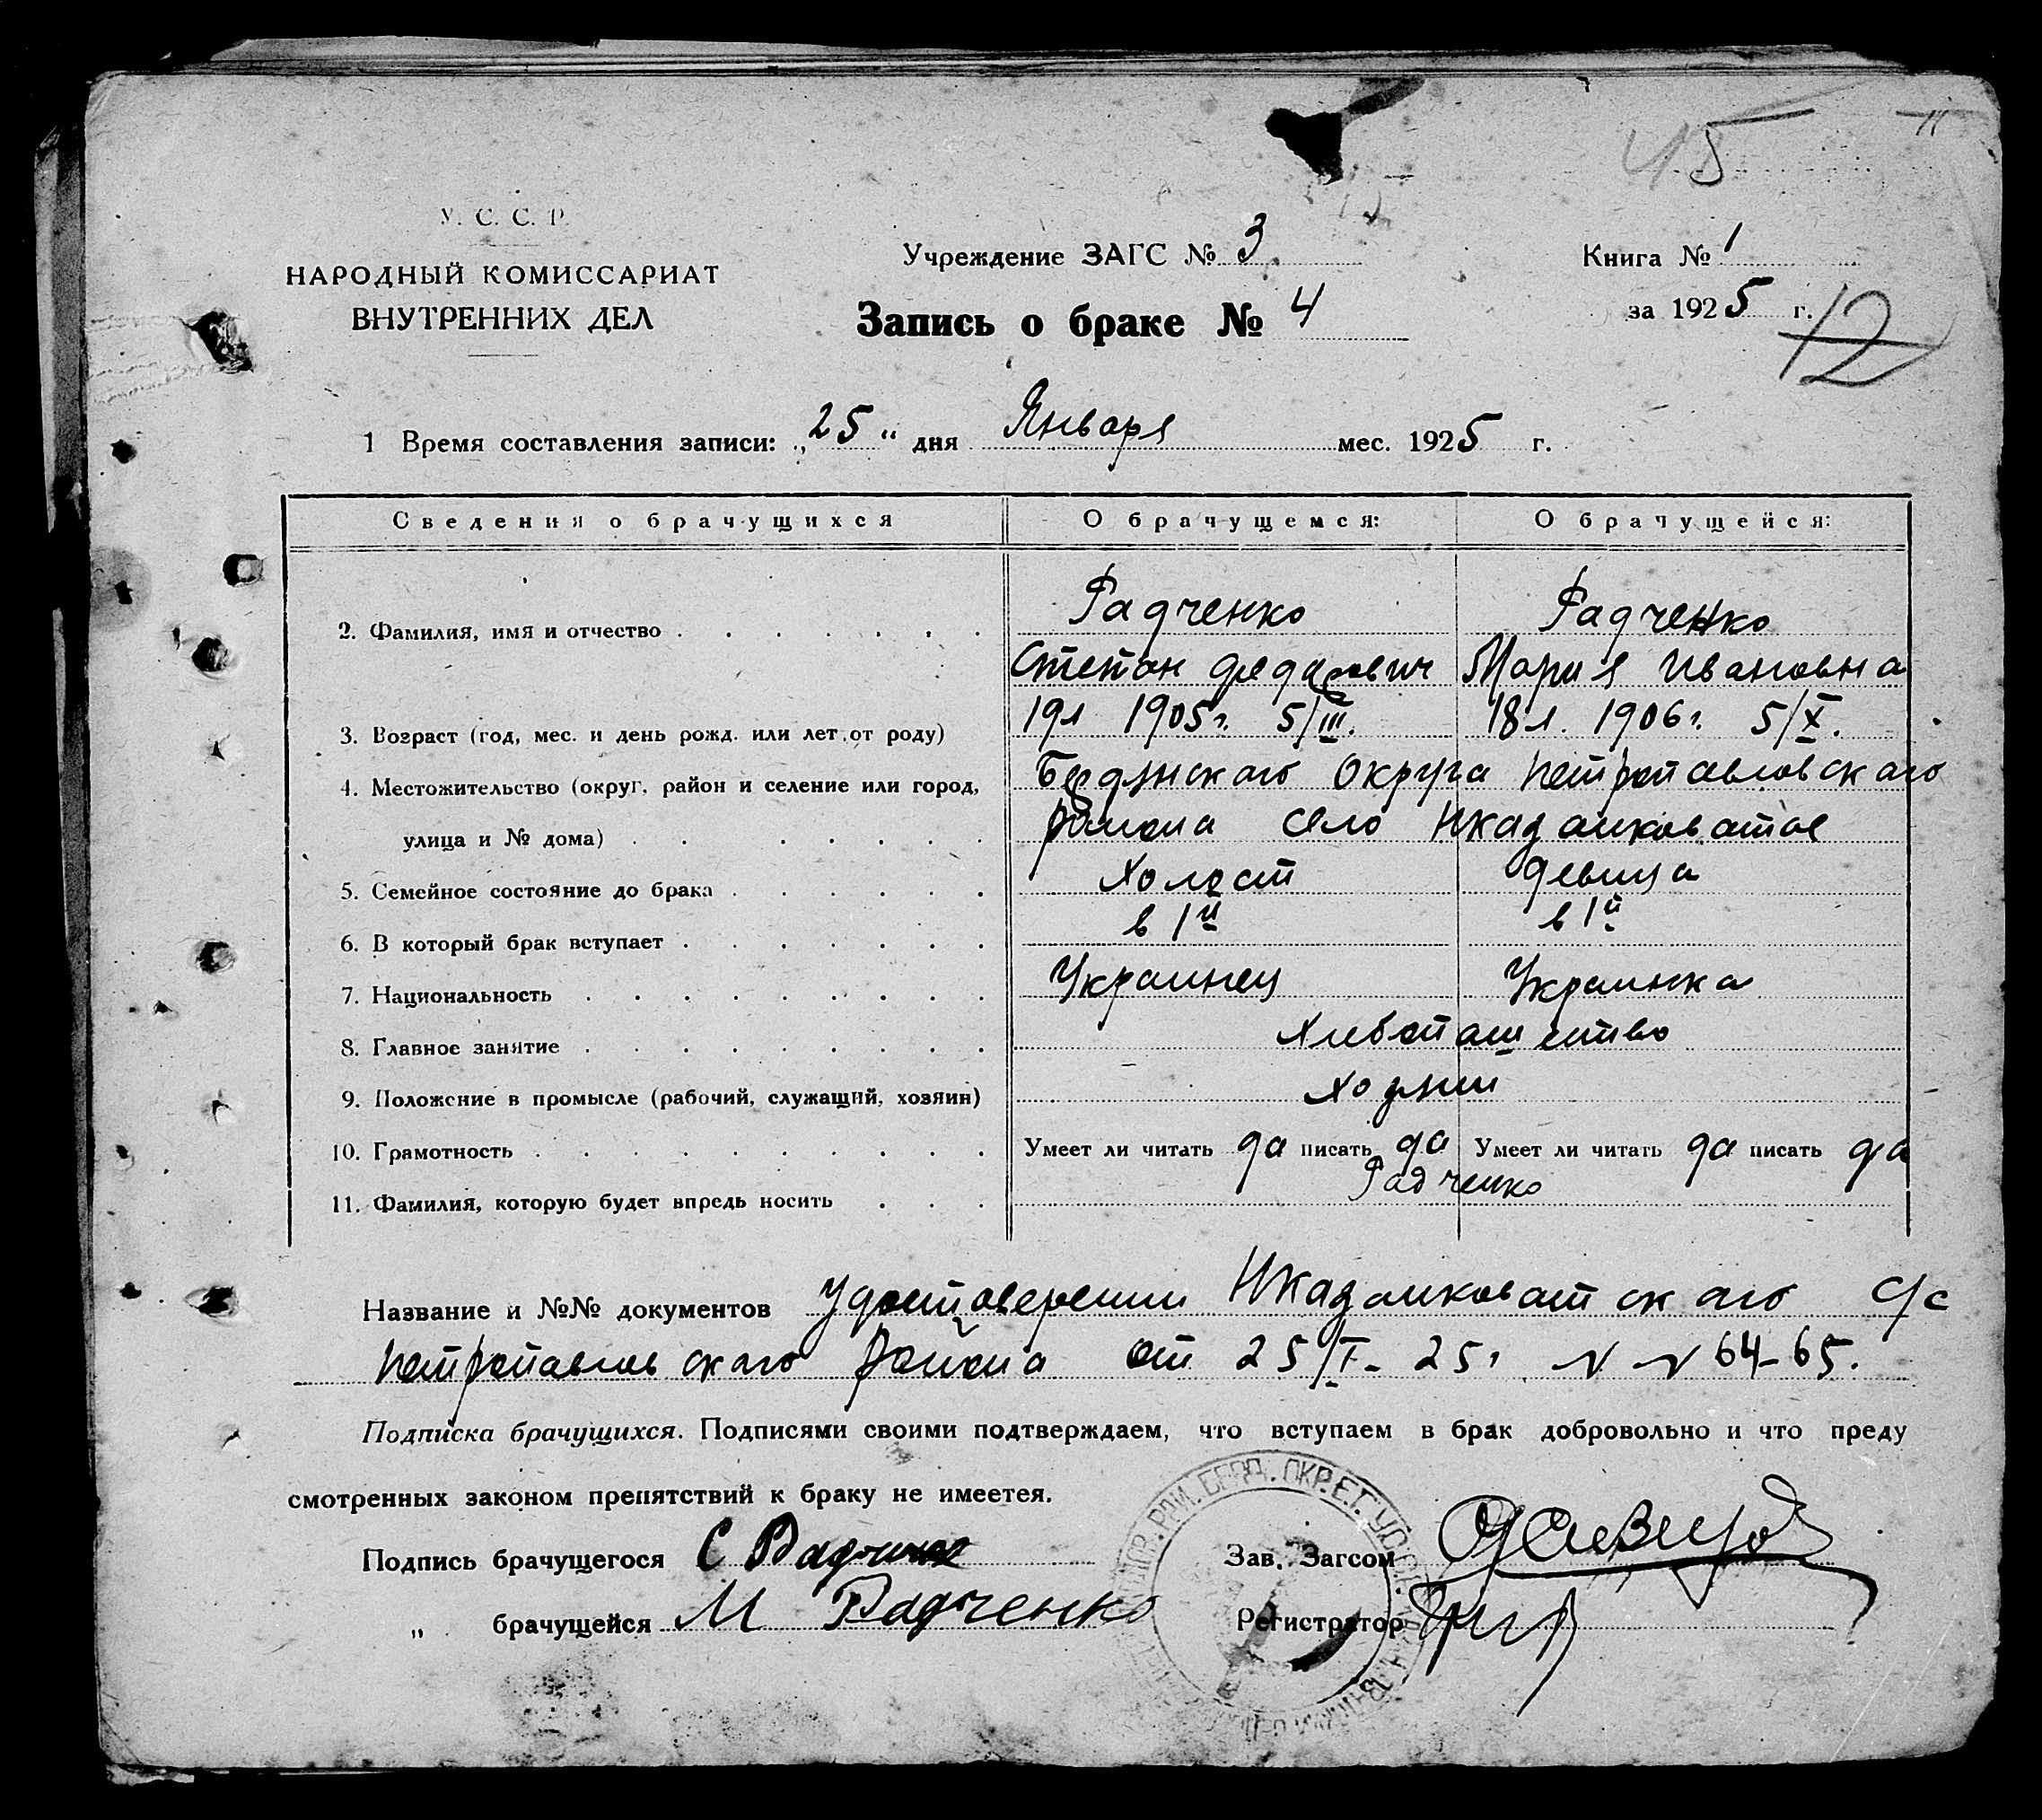 45
У. С. С. Р.
НАРОДНЫЙ КОМИССАРИАТ
ВНУТРЕННИХ ДЕЛ
Учреждение ЗАГС № 3.
Запись о браке № 4
Книга № 1
за 1925 г.
12
1 Время составления записи: „25" дня Января мес. 1925 г.
Сведения о брачущихся О брачущемся: О брачущейся:
2. Фамилия, имя и отчество Радченко Радченко
Степан Федорович Мария Ивановна
3. Возраст (год, мес. и день рожд. или лет от роду) 19л 1905г. 5/III. 18л. 1906г. 5/X.
4. Местожительство (округ, район и селение или город, Бердянского Округа Петропавловского
улица и № дома) района село
5. Семейное состояние до брака Холост девица
6. В который брак вступает в 1й в 1й
7. Национальность Украинец Украинка
8. Главное занятие Хлебопашество
9. Положение в промысле (рабочий, служащий, хозяин)
10. Грамотность Умеет ли читать да писать да Умеет ли читать да писать да
11. Фамилия, которую будет впредь носить Радченко
Название и №№ документов Удостоверении с/с
Петропавловского района от 25/I-25г. N N 64-65.
Подписка брачущихся. Подписями своими подтверждаем, что вступаем в брак добровольно и что преду
смотренных законом препятствий к браку не имеетея.
Подпись брачущегося С Радченко
Зав. Загсом
„ брачущейся М Радченко
Регистратор